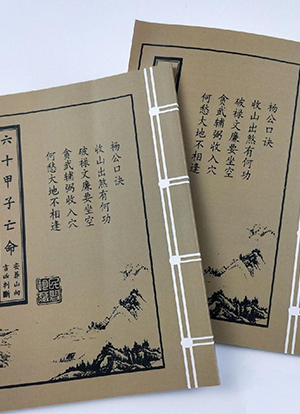 杨公口诀
收山出煞有何功
破禄文廉要坐空
贪武辅弼收入穴
何愁大地不相逢
六十甲子亡命
安葬山向
吉凶判断
杨公口诀
收山出煞有何功
破禄文廉要坐空
贪武辅弼收入穴
何愁大地不相逢